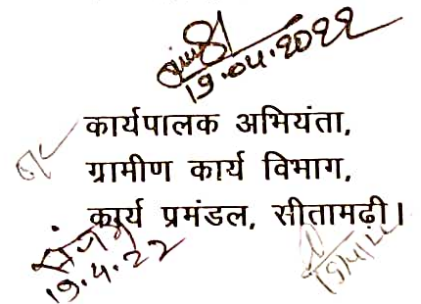 19.04.2022
कार्यपालक अभियंता,
ग्रामीण कार्य विभाग,
कार्य प्रमंडल, सीतामढ़ी।
19.4.22